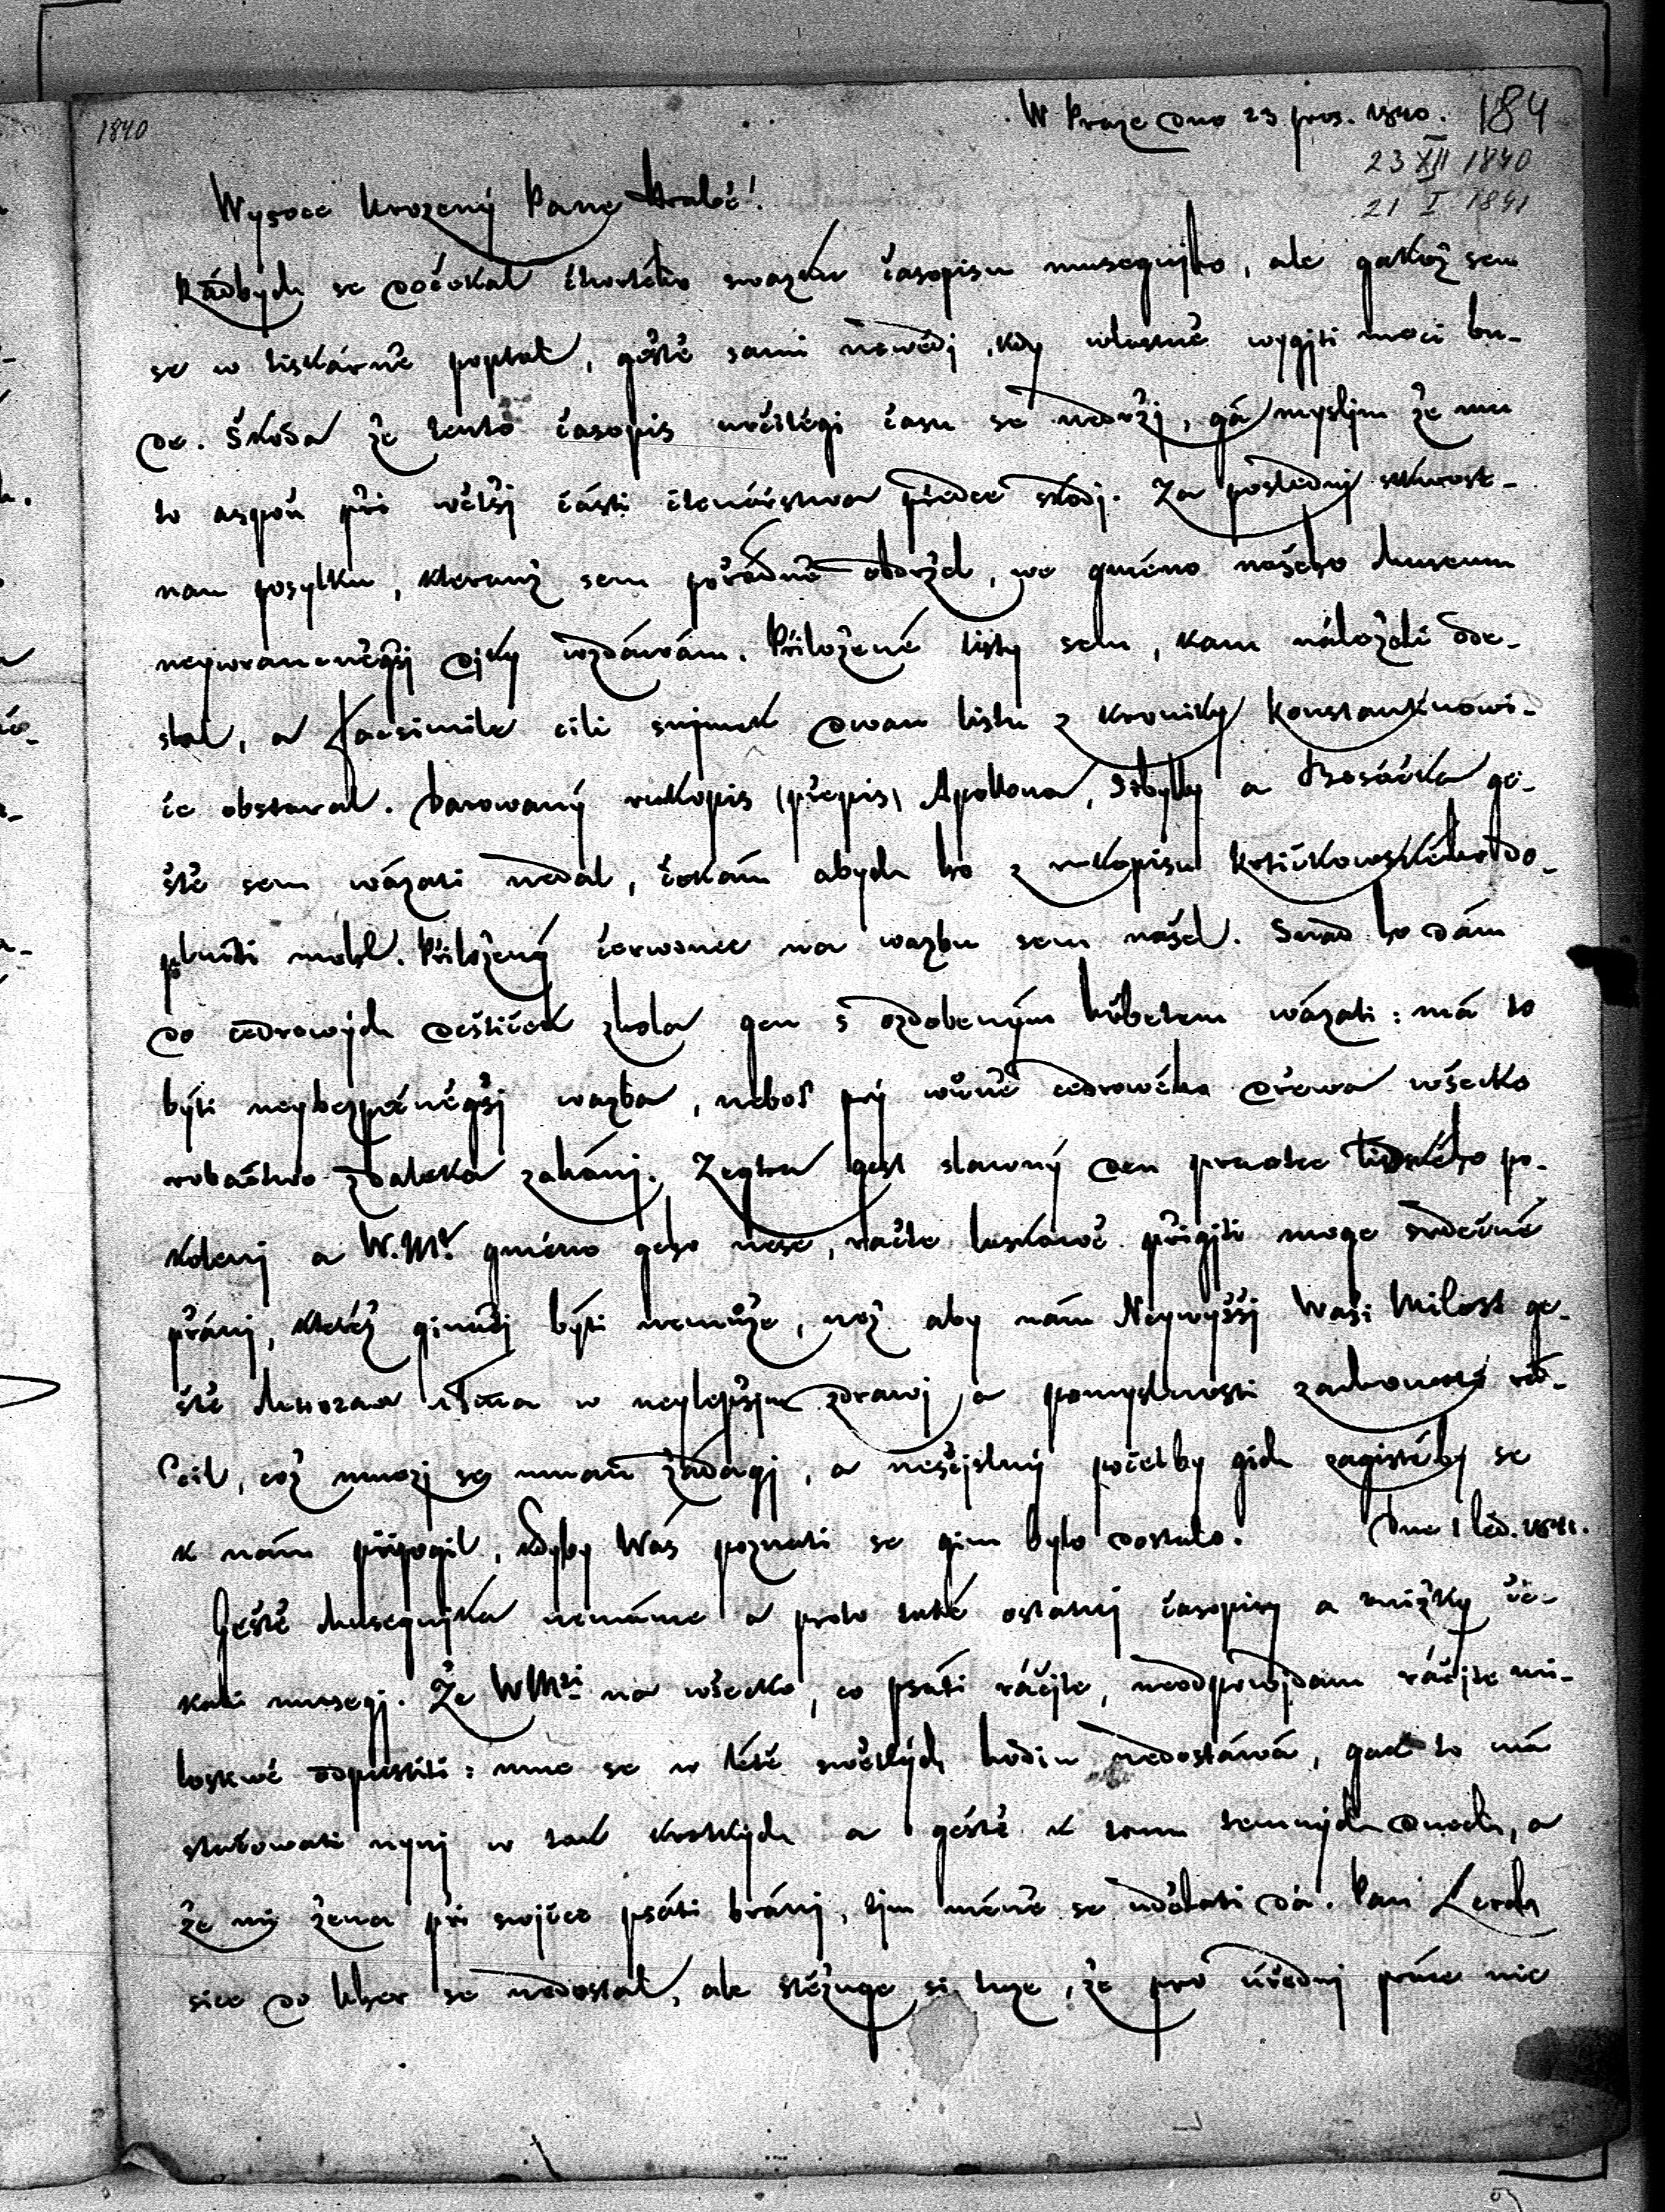 1840
W Praze dne 23 pros. 1840. 184
23 XII 1840
21 I 1841
Wysoce Urozený Pane Hrabě!
Rádbych se dočekal čtwrtého swazku časopisu musegnjho, ale gakož sem
se w tiskárně poptal, geště sami newědj, kdy wlastně wygjti moci bu-
de. Škoda že tento časopis určitégi času se nedržj, gá mysljm že mu
to aspoň při wětšj části čtenářstwa předce škodj. Za poslednj skwost-
nau posylku, kterauž sem pořádně obdržel, we gméno našeho Museum
neywraucněgšj djky wzdáwám. Přiložené listy sem, kam náleželi ode-
slal, a Facsimile čili snjmek dwau listu z kroniky Konstantinowi-
če obstaral. Darowaný rukopis (přepis) Apollona, Sibylly a Bosáčka ge-
ště sem wázati nedal, čekám abych ho z rukopisu Košičkowského do-
plniti mohl. Přiložený čerwenec na wazbu sem našel. Snad ho dám
do cedrowých deštiček zhola gen s ozdobeným hřbetem wázati: má to
býti neybezpečněgšj wazba, neboť prý wůně cedrowého dřewa wšecko
robactwo zdaleka zahánj. Zegtra gest slawný den praotce lidského po-
kolenj a W. Mt gméno geho nese, račte laskawě přigjti moge srdečné
přánj, kteréž ginačj býti nemůže, než aby nám Neywyššj Waši Milost ge-
ště mnoza léta w neylepšjm zdrawj a pomyslnosti zachowati rá-
čil, což mnozj se mnau žádagj, a nesčjslný počet by gich zagisté by se
k nám připogil, kdyby Wás poznati se gim bylo dostalo. Dne 1 led. 1841.
Geště Musegnjka nemáme a proto také ostatnj časopisy a knižky če-
kati musegj. Že WMti na wšecko, co psáti ráčjte, neodpowjdam ráčjte mi-
lostiwě odpustiti: mne se w létě swětlých hodin nedostáwá, gak to má
stačowati nynj w tak krátkých a geště k tomu temných dnech, a
že mi žena při swjčce psáti bránj, tjm méně se udělati dá. Pan Lerch
sice do Uher se nedostal, ale stěžuge si tuze, že pro úřednj práce nic